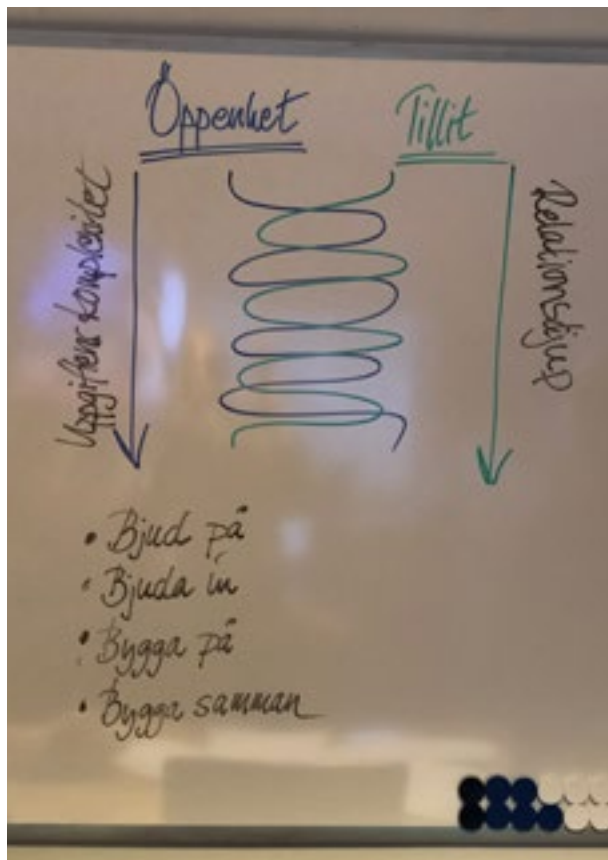 Öppenhet
Tillit
Uppgiftens komplexitet
Relationsdjup
• Bjud på
• Bjuda in
• Bygga på
• Bygga samman